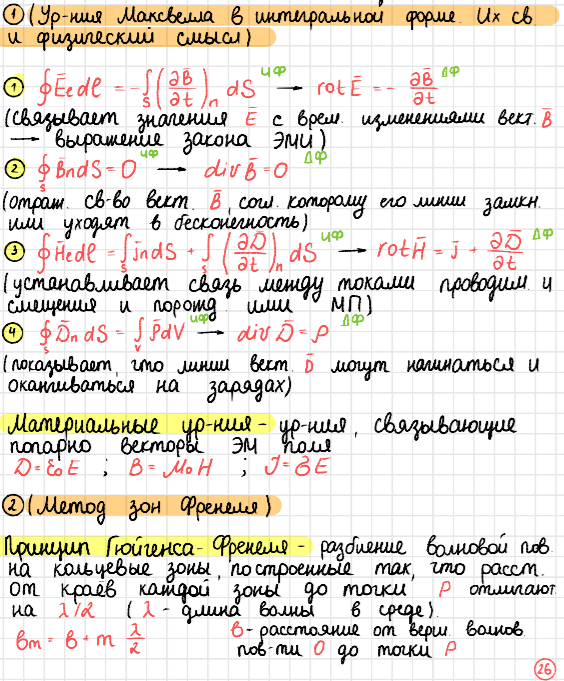 ① (Ур-ния Максвелла в интегральной форме. Их св
и физический смысл)
① ∮E̅ₑdl = -∫ₛ(∂B̅/∂t)ₙ dS ᴵᴵФ → rot E̅ = - ∂B̅/∂t ДФ
(связывает значения E̅ с врем. изменениями вект. B̅
→ выражение закона ЭМИ)
② ∮ₛ B̅ₙdS = 0 ИФ → div B̅ = 0 ДФ
(отраж. св-во вект. B̅, согл. которому его линии замкн.
или уходят в бесконечность)
③ ∮H̅ₑdl = ∫ₛ j̅ₙdS + ∫ₛ (∂D̅/∂t)ₙ dS ИФ → rot H̅ = j̅ + ∂D̅/∂t ДФ
(устанавливает связь между токами проводим. и
смещения и порожд. ими МП)
④ ∮ₛ D̅ₙ dS = ∫ᵥ ρ̅dV ИФ → div D̅ = ρ ДФ
(показывает, что линии вект. D̅ могут начинаться и
оканчиваться на зарядах)
Материальные ур-ния - ур-ния, связывающие
попарно векторы ЭМ поля
D = ξ₀E ; B = M₀H ; J = σE
② (Метод зон Френеля)
Принцип Гюйгенса-Френеля - разбиение волновой пов.
на кольцевые зоны, построенные так, что расст.
от краёв каждой зоны до точки P отличают.
на λ/2 (λ - длина волны в среде).
вm = в + m λ/2 в - расстояние от верш. волнов.
пов-ти O до точки P
26